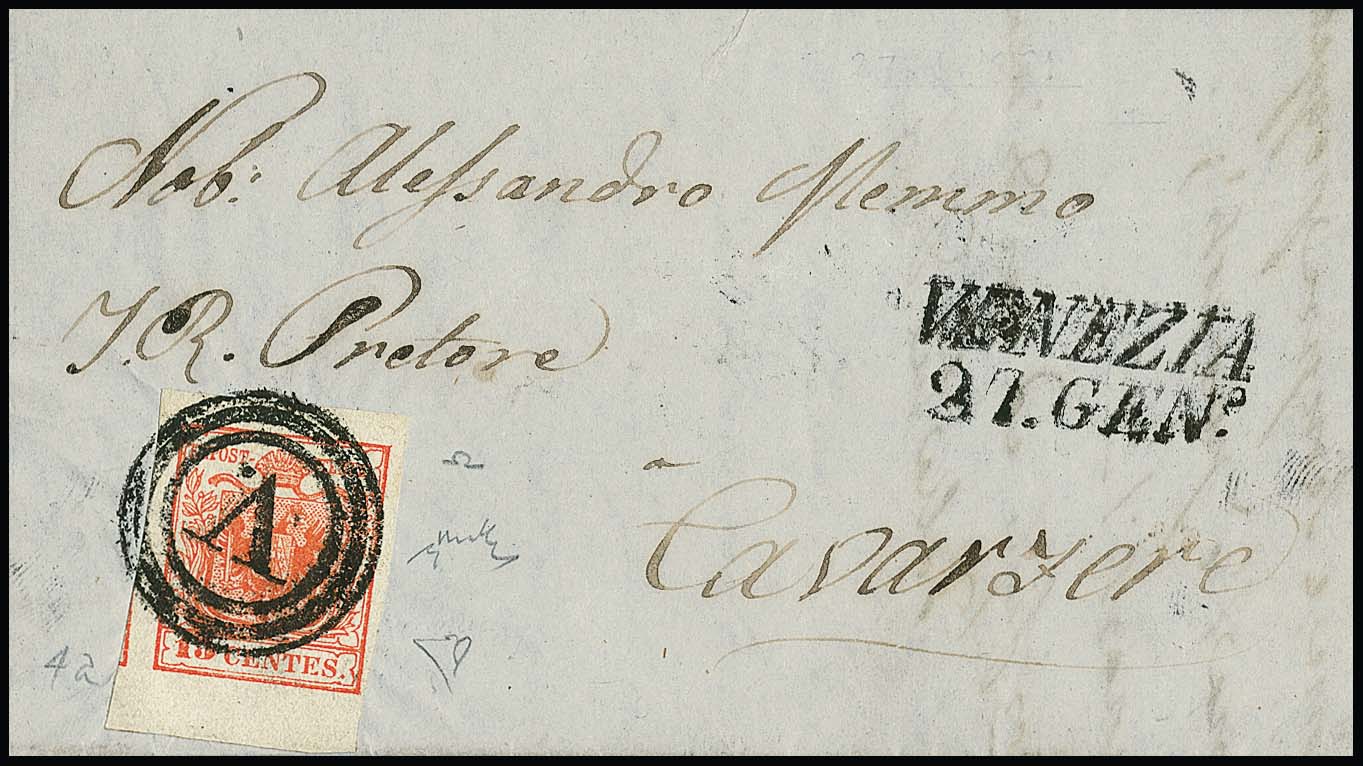 Nob: Alessandro Memmo
I. R. Pretore
VENEZIA
27. GEN.º
a
Cavarzere
POST
V
15 CENTES.
4a